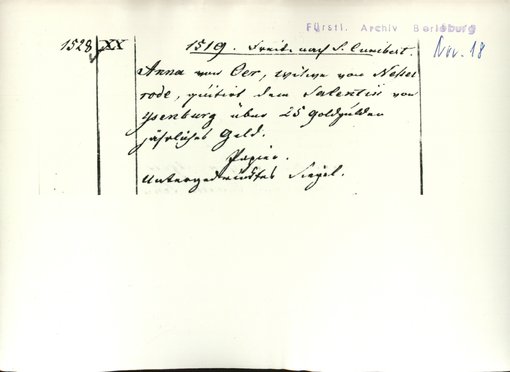 Fürstl. Archiv Berleburg
1528 XX 1519. Freit. nach S. Cunibert. Nov. 18
Anna von Oer, witwe von Nesselrode, quitirt dem Salentin von
Ysenburg über 25 goldgulden
jährliches Geld.
Papier.
Untergedrücktes Siegel.